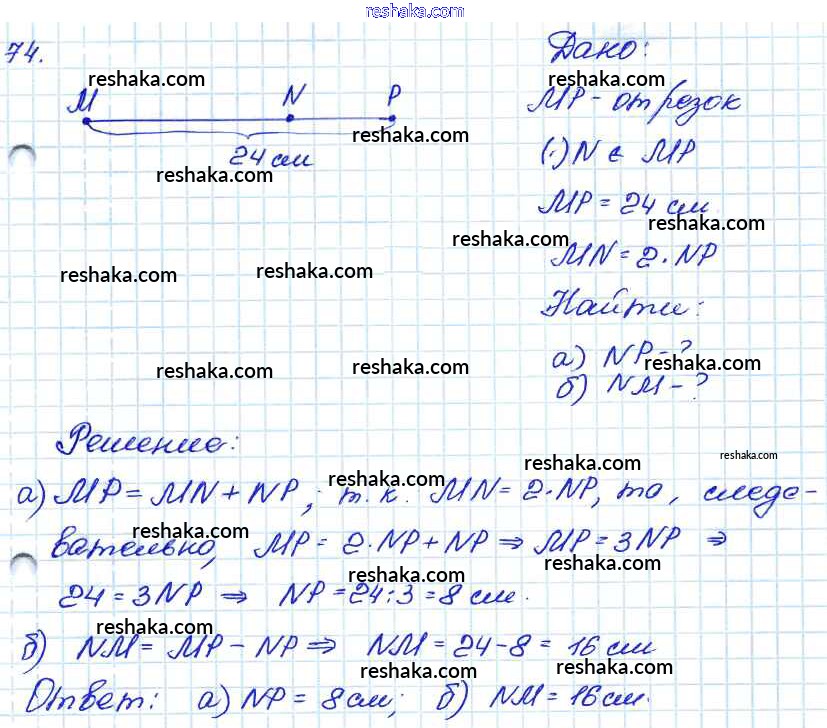 reshaka.com
74.
Дано:
reshaka.com
reshaka.com
M N P
MP - отрезок
reshaka.com
24 см
(·) N ∈ MP
reshaka.com
MP = 24 см
reshaka.com
reshaka.com
MN = 2·NP
reshaka.com
reshaka.com
Найти:
а) NP - ?
reshaka.com
reshaka.com
reshaka.com
б) NM - ?
Решение:
reshaka.com
reshaka.com
а) MP = MN + NP, т.к. MN = 2·NP, то, следо-
reshaka.com
reshaka.com
вательно, MP = 2·NP + NP ⇒ MP = 3NP ⇒
reshaka.com
24 = 3NP ⇒ NP = 24:3 = 8 см.
reshaka.com
reshaka.com
б) NM = MP - NP ⇒ NM = 24-8 = 16 см
reshaka.com
reshaka.com
Ответ: а) NP = 8 см; б) NM = 16 см.